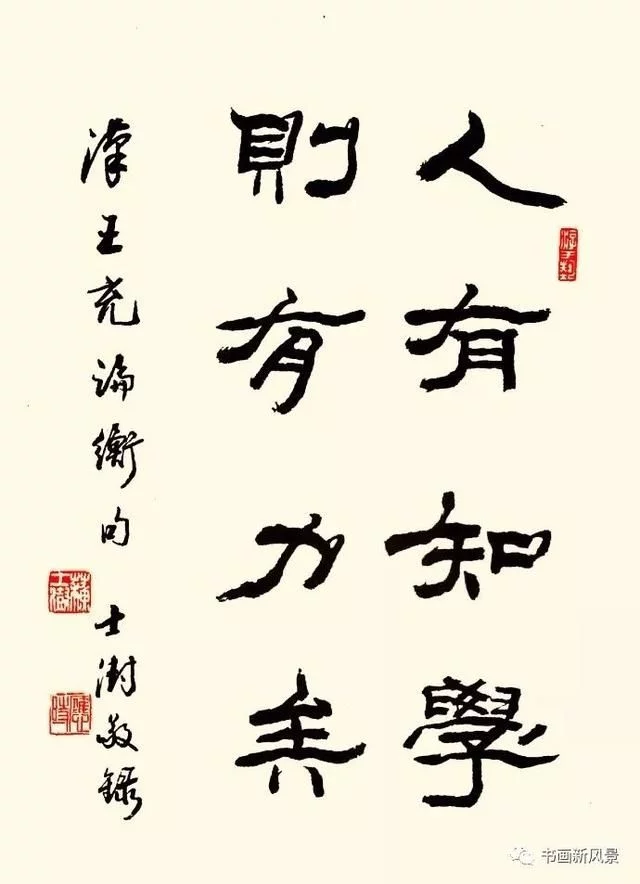 人有知學
則有力矣
漢王充論衡句 士澍敬錄
书画新风景